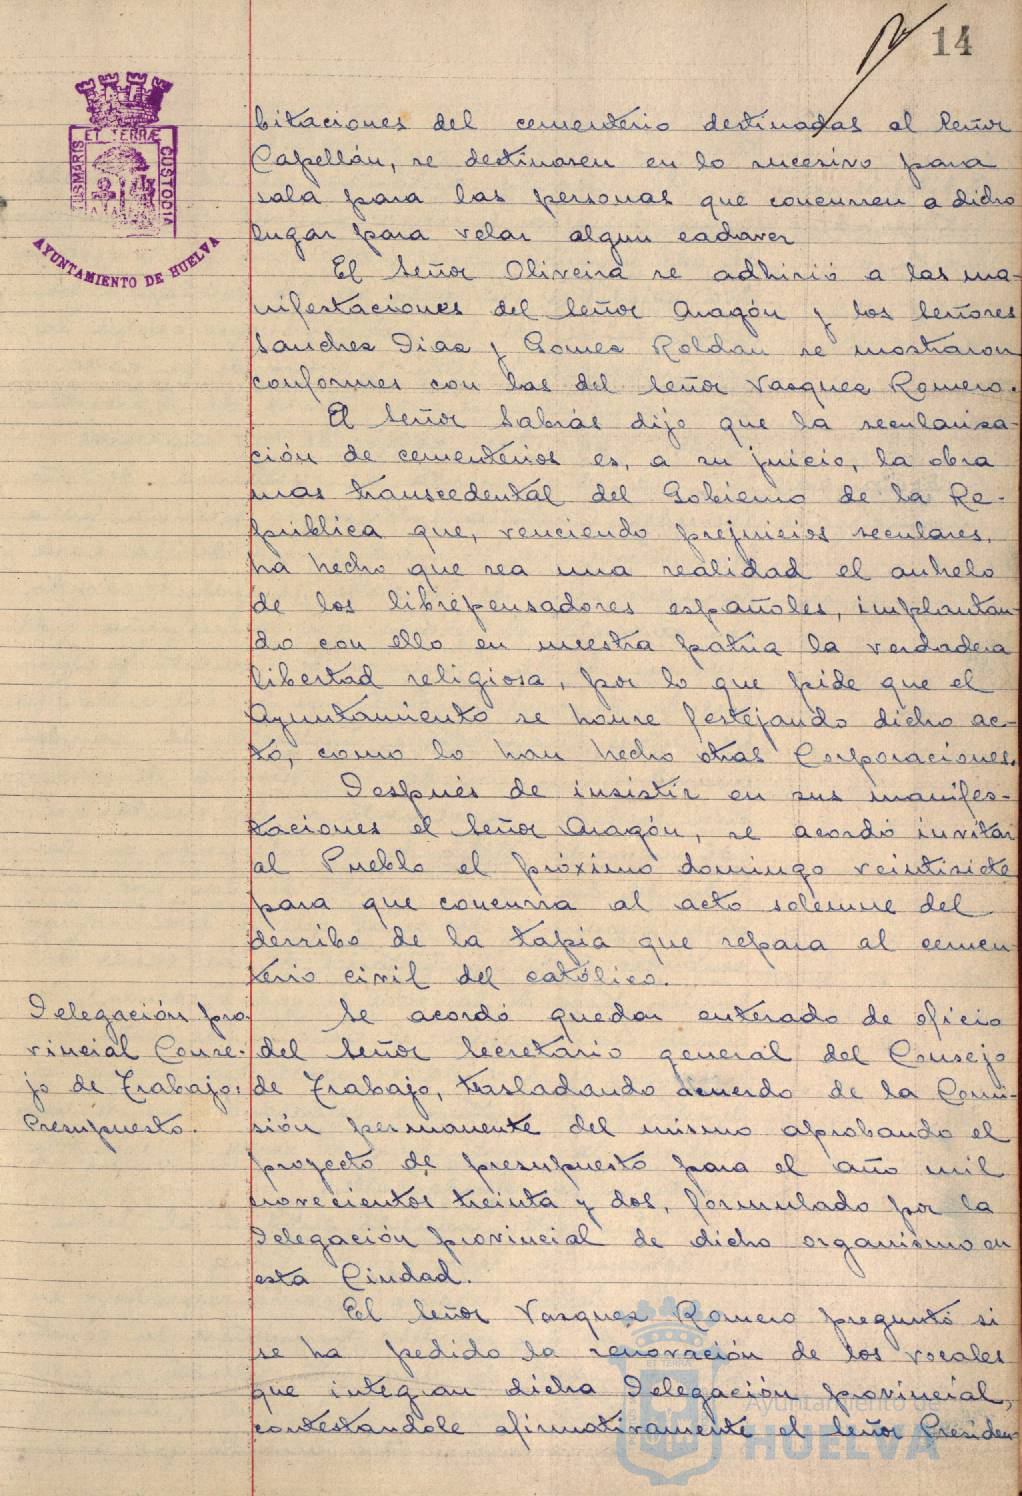 14
PORTUS MARIS ET TERRÆ CUSTODIA
AYUNTAMIENTO DE HUELVA
bitaciones del cementerio destinadas al Señor
Capellán, se destinasen en lo sucesivo para
sala para las personas que concurren a dicho
lugar para velar algun cadaver
El Señor Oliveira se adhirió a las ma-
nifestaciones del Señor Aragón y los Señores
Sanchez Diaz y Gomez Roldan se mostraron
conformes con las del Señor Vazquez Romero.
El Señor Sabrás dijo que la seculariza-
ción de cementerios es, a su juicio, la obra
mas transcedental del Gobierno de la Re-
pública que, venciendo prejuicios seculares,
ha hecho que sea una realidad el anhelo
de los librepensadores españoles, implantan-
do con ello en nuestra patria la verdadera
libertad religiosa, por lo que pide que el
Ayuntamiento se honre festejando dicho ac-
to, como lo han hecho otras Corporaciones.
Después de insistir en sus manifes-
taciones el Señor Aragón, se acordó invitar
al Pueblo el próximo domingo veintisiete
para que concurra al acto solemne del
derribo de la tapia que separa al cemen-
terio civil del católico.
Delegación pro-
vincial Conse-
jo de Trabajo:
Presupuesto.
Se acordó quedar enterado de oficio
del Señor Secretario general del Consejo
de Trabajo, trasladando acuerdo de la Comi-
sión permanente del mismo aprobando el
proyecto de presupuesto para el año mil
novecientos treinta y dos, formulado por la
Delegación provincial de dicho organismo en
esta Ciudad.
El Señor Vazquez Romero preguntó si
se ha pedido la renovación de los vocales
que integran dicha Delegación provincial,
contestandole afirmativamente el Señor Presiden-
Ayuntamiento de
HUELVA